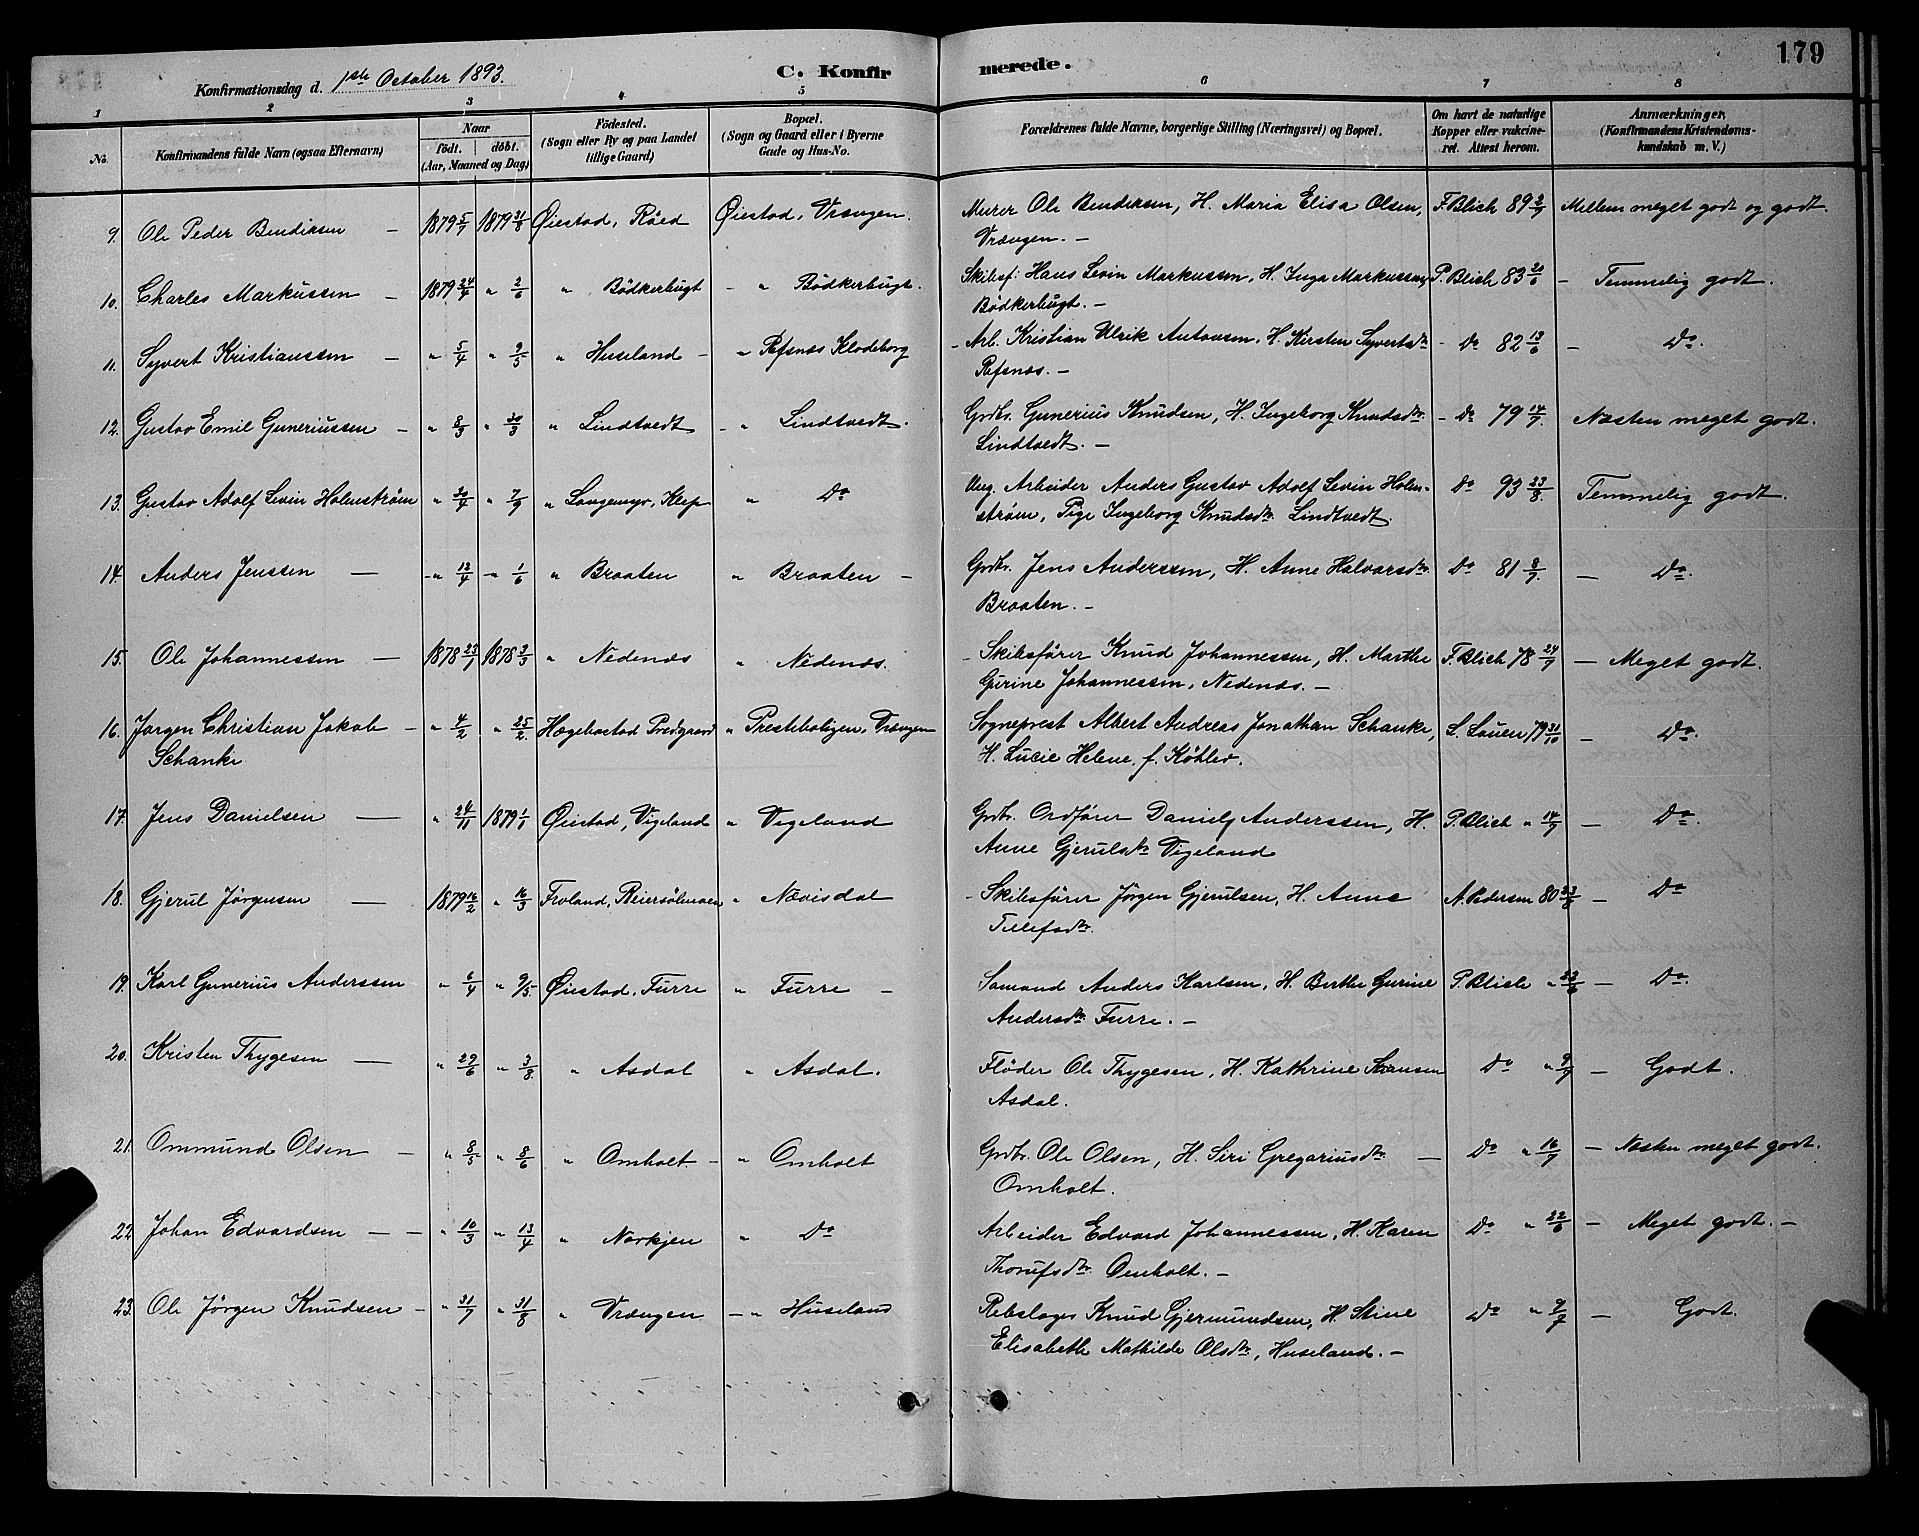 Konfirmationsdag d. 1ste October 1893.
C. Konfirmerede.
179
1 2 3 4 5 6 7 8
No. Konfirmandens fulde Navn (ogsaa Efternavn) Naar födt. döbt. (Aar, Maaned og Dag) Födested. (Sogn eller By og paa Landet tillige Gaard) Bopæl. (Sogn og Gaard eller i Byerne Gade og Hus-No. Forældrenes fulde Navne, borgerlige Stilling (Næringsvei) og Bopæl. Om havt de naturlige Kopper eller vakcineret. Attest herom. Anmærkninger, (Konfirmandens Kristendomskundskab m. V.)
9. Ole Peder Bendiksen — 1879 5/7 1879 31/8 Øiestad, Röed Øiestad, Vrængen. Murer Ole Bendiksen, H. Maria Elisa Olsen, F. Blich 89 2/9 Mellem meget godt og godt.
Vrængen. —
10. Charles Markussen — 1879 24/4 " 2/6 " Bödkerbugt - " Bödkerbugt. Skibsf: Hans Levin Markussen, H. Inga Markussen P. Blich 83 20/6 — Temmelig godt.
Bödkerbugt. —
11. Syvert Kristianssen — " 5/4 " 9/5 " Huseland — " Refsnes Klodeborg - Arb. Kristian Ulrik Antonsen, H. Kirsten Syvertsdtr - Do 82 13/6 — Do.
Refsnes. —
12. Gustav Emil Guneriussen — " 8/3 " 30/3 " Lindtvedt - " Lindtvedt. Grdbr. Gunerius Knudsen, H. Ingeborg Knudsdtr - Do 79 14/7. Næsten meget godt.
Lindtvedt. —
13. Gustav Adolf Levin Holmstrøm " 30/4 " 7/9 " Longemyr, Klep " Do Ung. Arbeider Anders Gustav Adolf Levin Holm- Do 93 23/8 Temmelig godt.
strøm, Pige Ingeborg Knudsdtr Lindtvedt.
14. Anders Jenssen — " 12/4 " 1/6 " Braaten " Braaten — Grdbr. Jens Anderssen, H. Anne Halvorsdtr Do 81 8/7. — Do.
Braaten. —
15. Ole Johannessen — 1878 23/1 1878 3/3 " Nedenæs " Nedenæs. - Skibsfører Knud Johannessen, H. Marthe F. Blich 78 24/7 — Meget godt.
Gurine Johannessen, Nedenæs. —
16. Jørgen Christian Jakob — " 4/2 " 25/2. Hægebostad Prestgaard " Presteboligen, Vrængen Sogneprest Albert Andreas Jonathan Schanke, L. Lauen 79 31/10 — Do.
Schanke H. Lucie Helene, f. Köhler.
17. Jens Danielsen — " 24/11 1879 1/1 Øiestad, Vigeland " Vigeland Grdbr. Ordfører Daniel Anderssen, H. P. Blich " 14/7 — Do.
Anne Gjerulsdtr Vigeland
18. Gjerul Jørgensen — 1879 16/2 " 16/3 Froland, Reiersölmoen " Nævisdal - Skibsfører Jørgen Gjerulsen, H. Anne N. Pedersen 80 23/8 — Do
Tellefsdtr.
19. Karl Gunerius Anderssen " 6/4 " 9/5. Øiestad, Furre " Furre — Sømand Anders Karlsen, H. Berthe Gurine P. Blich " 23/6 — Do.
Andersdtr Furre. —
20. Kristen Thygesen — " 29/6 " 3/8. " Asdal " Asdal. Fløder Ole Thygesen, H. Kathrine Do " 9/7 — Godt.
Asdal.
21. Ommund Olsen — " 8/5 " 8/6 " Omholt — " Omholt Grdbr. Ole Olsen, H. Siri Gregariusdtr — Do " 16/7 — Næsten meget godt.
Omholt.
22 Johan Edvardsen — " 10/3 " 13/4 " Narkjen " Do Arbeider Edvard Johannessen, H. Karen Do " 22/6 — Meget godt. —
Thorufsdtr Omholt. —
23. Ole Jørgen Knudsen — " 31/7 " 31/8 " Vrængen — " Huseland Rebslager Knud Gjermundsen, H. Stine Do " 9/7 — Godt.
Elisabeth Mathilde Olsdtr, Huseland. —